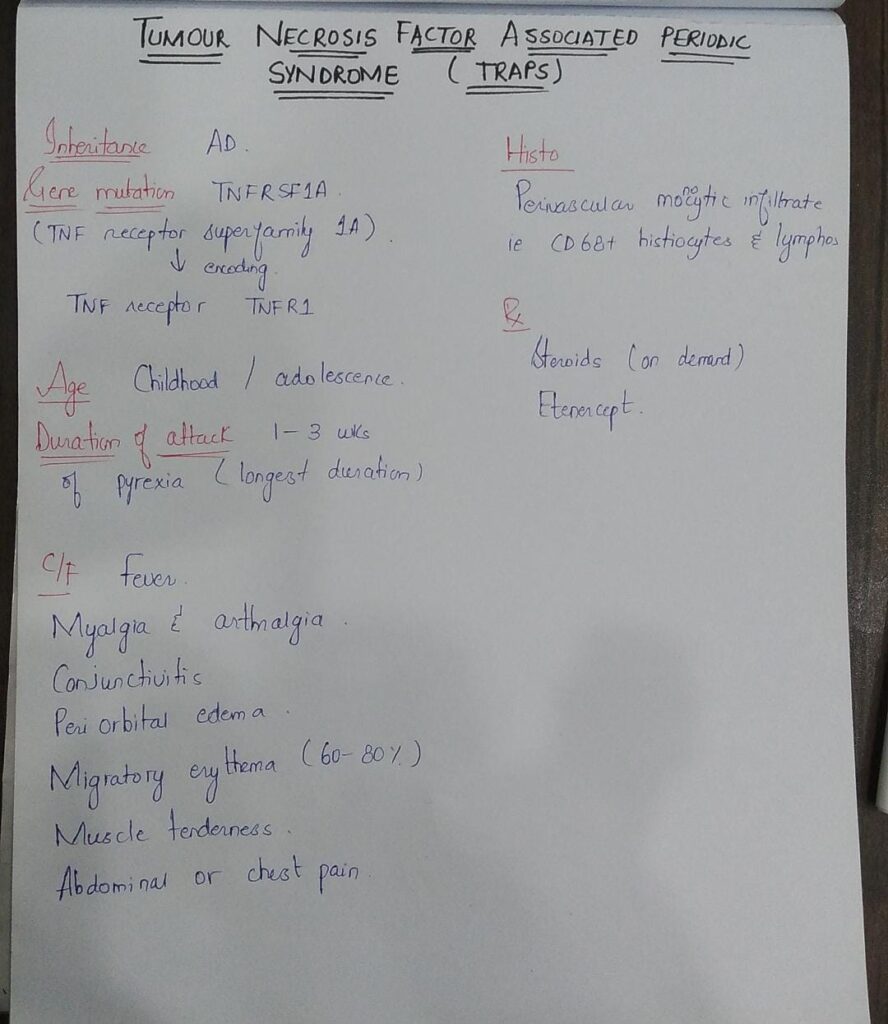 TUMOUR NECROSIS FACTOR ASSOCIATED PERIODIC
SYNDROME (TRAPS)
Inheritance AD.
Gene mutation TNFRSF1A.
(TNF receptor superfamily 1A).
↓ encoding.
TNF receptor TNFR1
Age Childhood / adolescence.
Duration of attack 1-3 wks
of pyrexia (longest duration)
C/F Fever.
Myalgia & arthralgia.
Conjunctivitis
Peri orbital edema.
Migratory erythema (60-80%)
Muscle tenderness.
Abdominal or chest pain
Histo
Perivascular monocytic infiltrate
ie CD68+ histiocytes & lymphos
Rx
Steroids (on demand)
Etenercept.